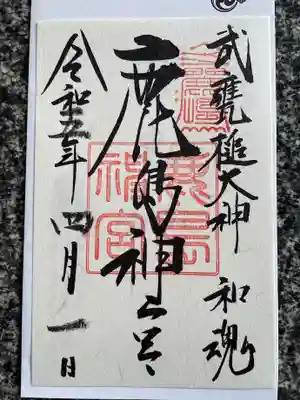 武甕槌大神 和魂
鹿島神宮
鹿島神宮
令和五年四月一日